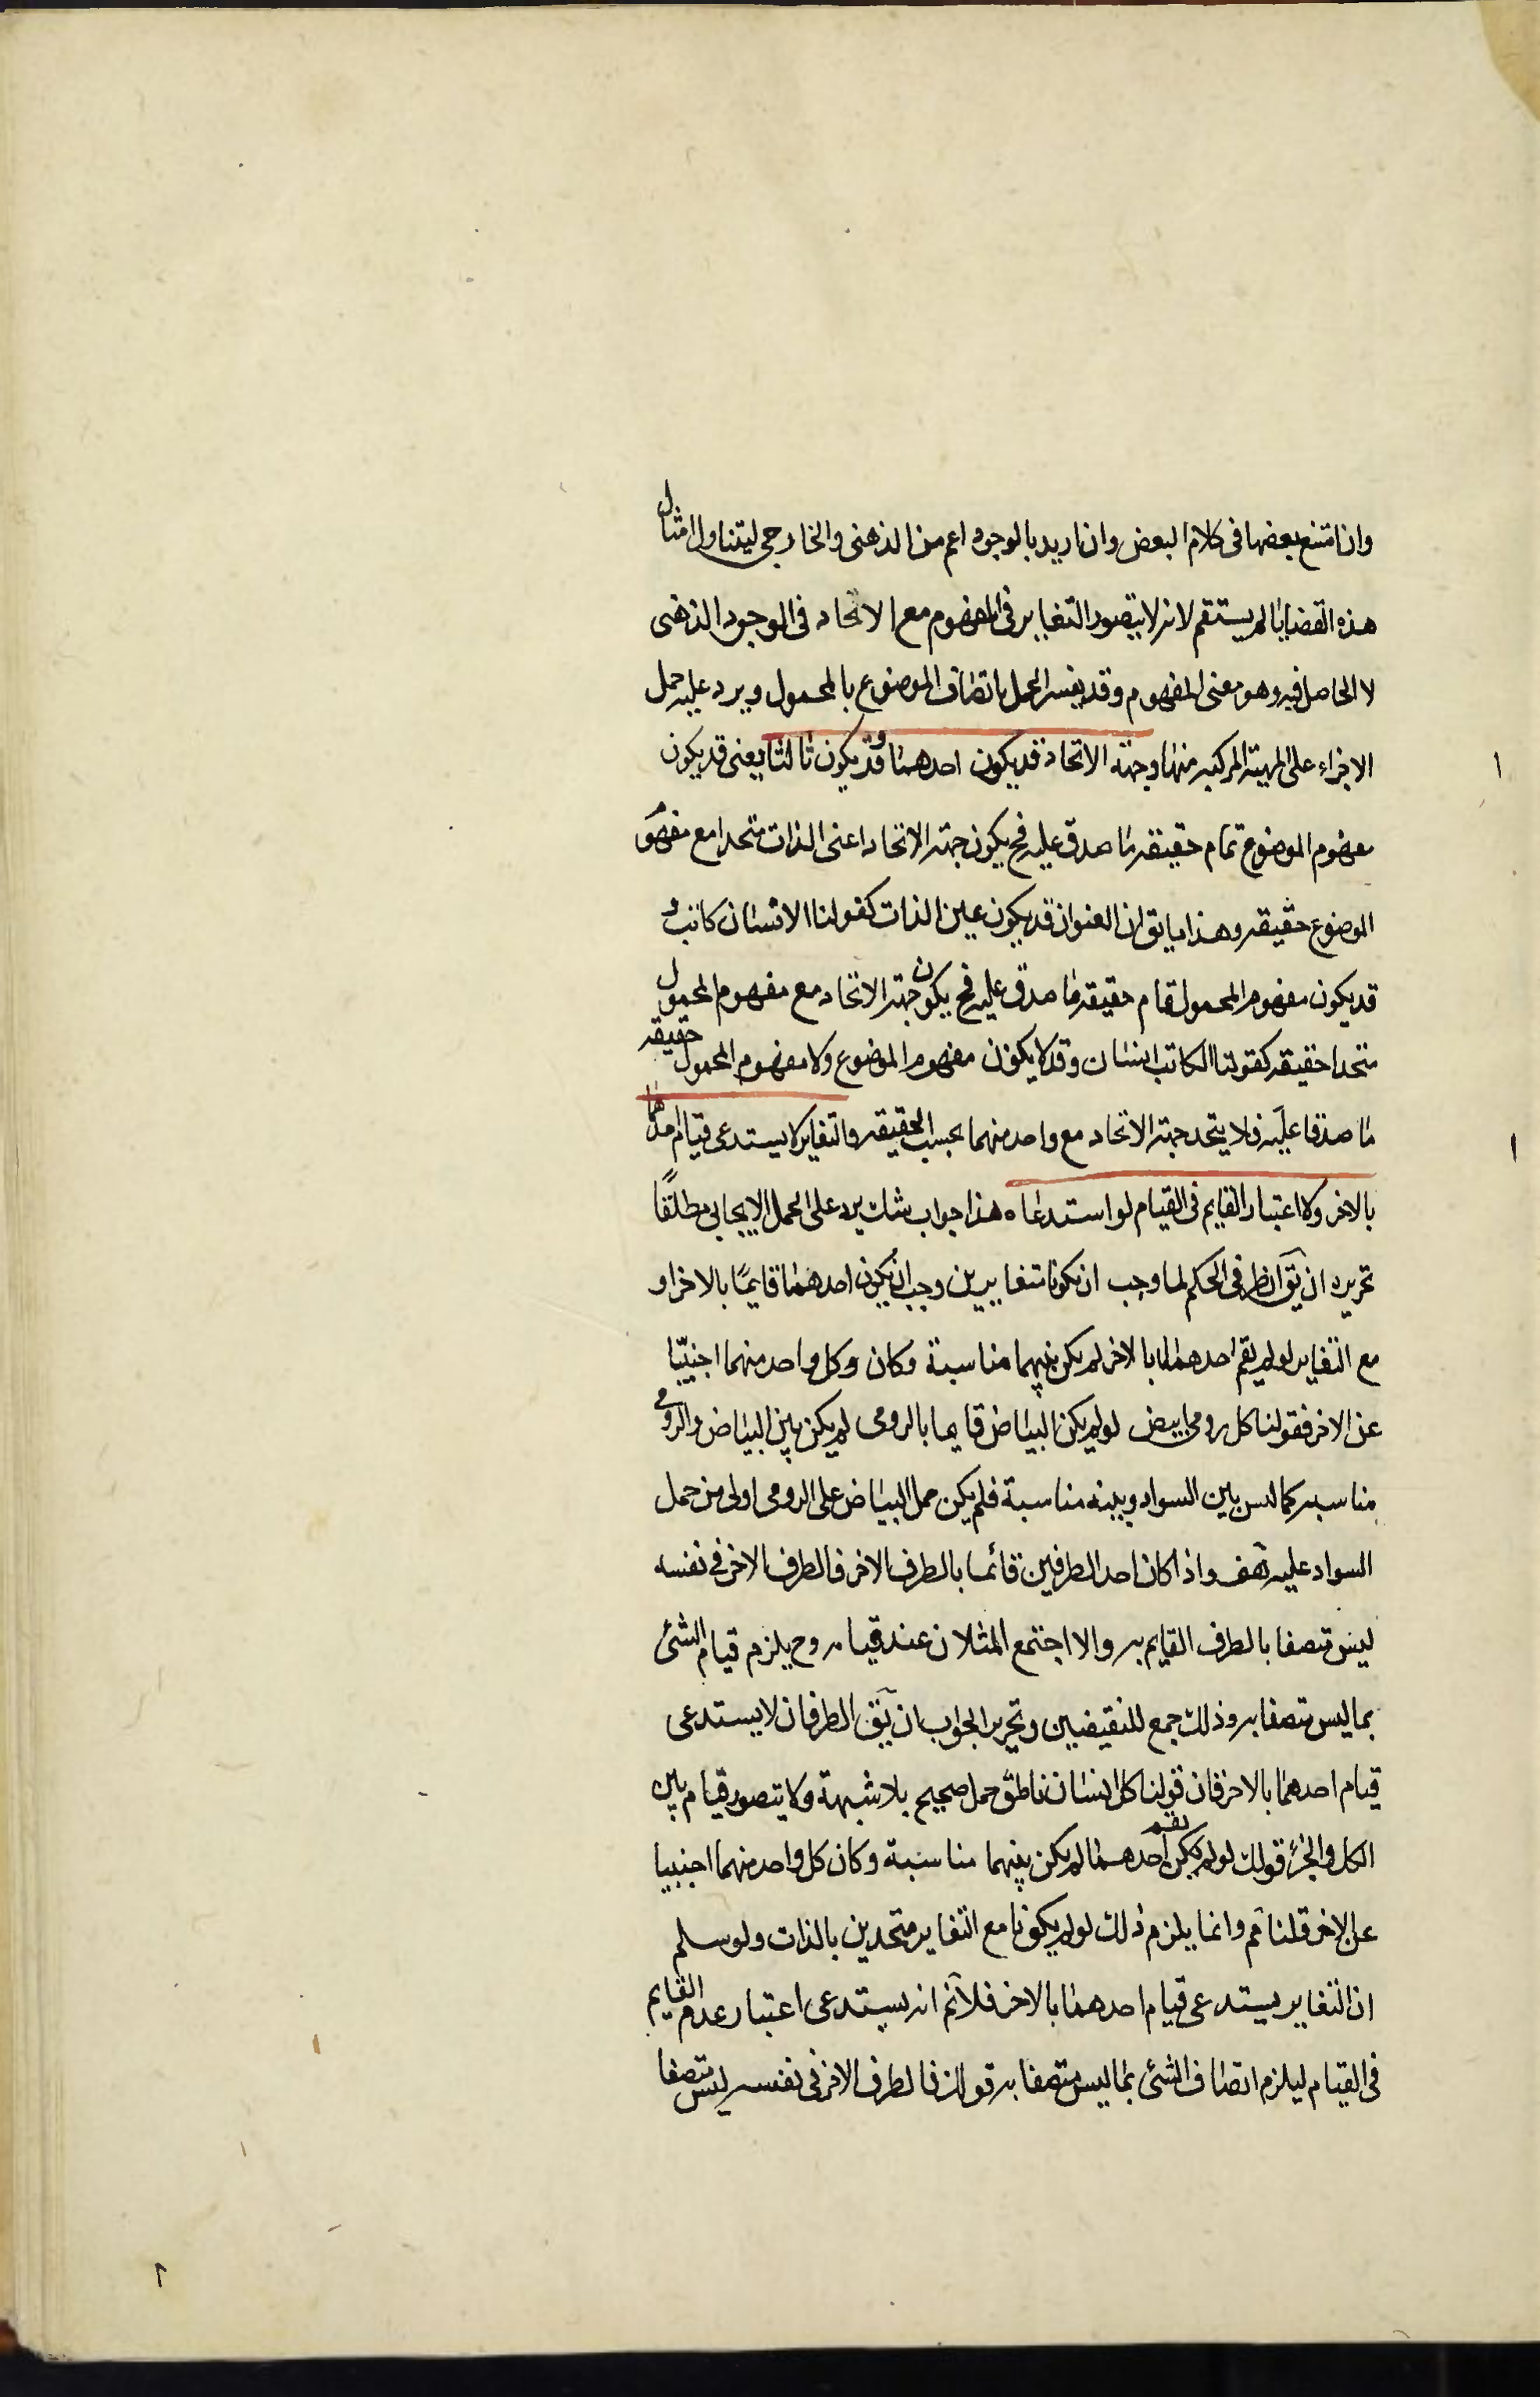 وان امتنع بعضها فى كلام البعض وان اريد بالوجود اعم من الذهنى والخارجى ليتناول امثال
هذه القضايا لم يستقم لانه لا يتصور التغاير فى المفهوم مع الاتحاد فى الوجود الذهنى
لا الحاصل فيه وهو معنى المفهوم وقد يفسر الحمل باتصاف الموضوع بالمحمول ويرد عليه حمل
الاجزاء على المهية المركبه منها وجهة الاتحاد قد يكون احدهما وقد يكون ثالثا يعنى قد يكون
مفهوم الموضوع تمام حقيقه ما صدق عليه فح يكون جهة الاتحاد اعنى الذات متحدا مع مفهوم
الموضوع حقيقه وهذا ما يق ان العنوان قد يكون عين الذات كقولنا الانسان كاتب و
قد يكون مفهوم المحمول تمام حقيقه ما صدق عليه فح يكون جهة الاتحاد مع مفهوم المحمول
متحدا حقيقه كقولنا الكاتب انسان وقد لا يكون مفهوم الموضوع ولا مفهوم المحمول حقيقه
ما صدقا عليه فلا يتحد جهة الاتحاد مع واحد منهما بحسب الحقيقه والتغاير لا يستدعى قيام احدهما
بالاخر ولا اعتبار القايم فى القيام لو استدعاه هذا جواب شك يرد على الحمل الايجابى مطلقًا
تحريره ان يق الطرفى الحكم لما وجب ان يكونا متغايرين وجب ان يكون احدهما قايمًا بالاخر او
مع التغاير لو لم يقم احدهما بالاخر لم يكن بينهما مناسبة وكان وكل واحد منهما اجنبيّا
عن الاخر فقولنا كل رومى ابيض لو لم يكن البياض قايما بالرومى لم يكن بين البياض والرومى
مناسبه كما ليس بين السواد وبينه مناسبة فلم يكن حمل البياض على الرومى اولى من حمل
السواد عليه هف واذا كان احد الطرفين قائما بالطرف الاخر فالطرف الاخر فى نفسه
ليس متصفا بالطرف القايم به والا اجتمع المثلان عند قيامه وح يلزم قيام الشئ
بما ليس متصفا به وذلك جمع للنقيضين وتحرير الجواب ان يق الطرفان لا يستدعى
قيام احدهما بالاخر فان قولنا كل انسان ناطق حمل صحيح بلا شبهة ولا يتصور قيام بين
الكل والجزء قولك لو لم يكن يقم احدهما لم يكن بينهما مناسبة وكان كل واحد منهما اجنبيا
عن الاخر قلنا مم وانما يلزم ذلك لو لم يكونا مع التغاير متحدين بالذات ولو سلم
ان التغاير يستدعى قيام احدهما بالاخر فلا نم انه يستدعى اعتبار عدم القايم
فى القيام ليلزم اتصاف الشئ بما ليس متصفا به قولك فالطرف الاخر فى نفسه ليس متصفا